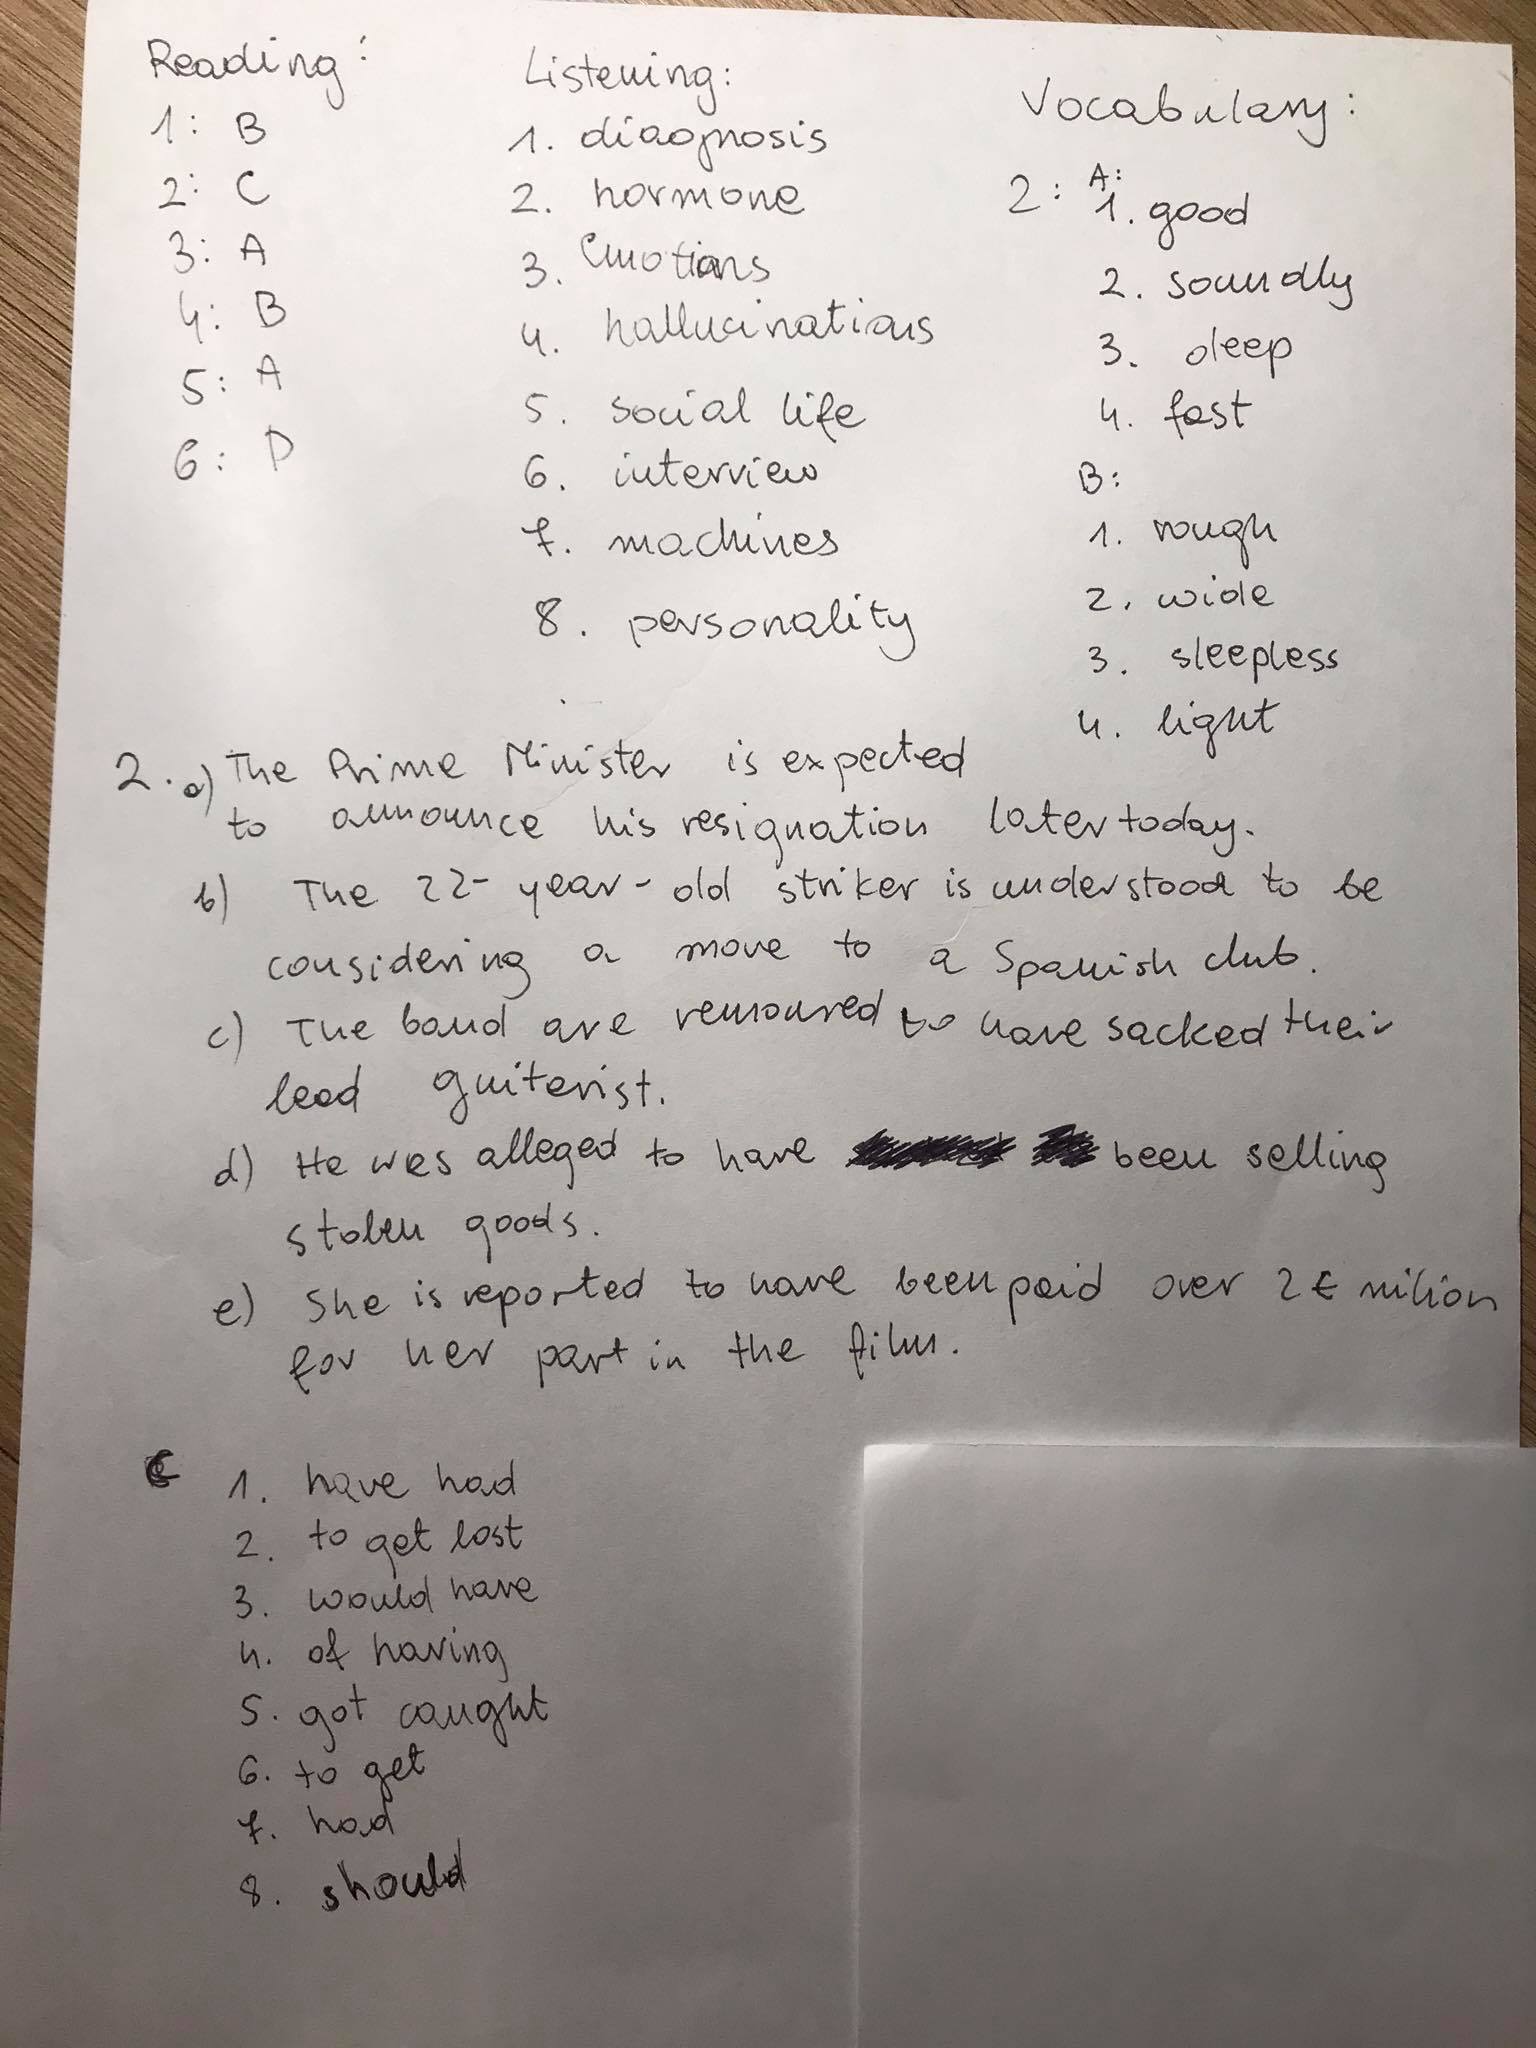 Reading:
1: B
2: C
3: A
4: B
5: A
6: D
Listening:
1. diagnosis
2. hormone
3. Emotions
4. hallucinations
5. social life
6. interview
7. machines
8. personality
Vocabulary:
2: A:
1. good
2. soundly
3. deep
4. fast
B:
1. rough
2. wide
3. sleepless
4. light
2. a) The Prime Minister is expected
to announce his resignation later today.
b) The 22-year-old striker is understood to be
considering a move to a Spanish club.
c) The band are remoured to have sacked their
lead guiterist.
d) He was alleged to have been selling
stolen goods.
e) She is reported to have been paid over 2€ milion
for her part in the film.
C
1. have had
2. to get lost
3. would have
4. of having
5. got caught
6. to get
7. had
8. should